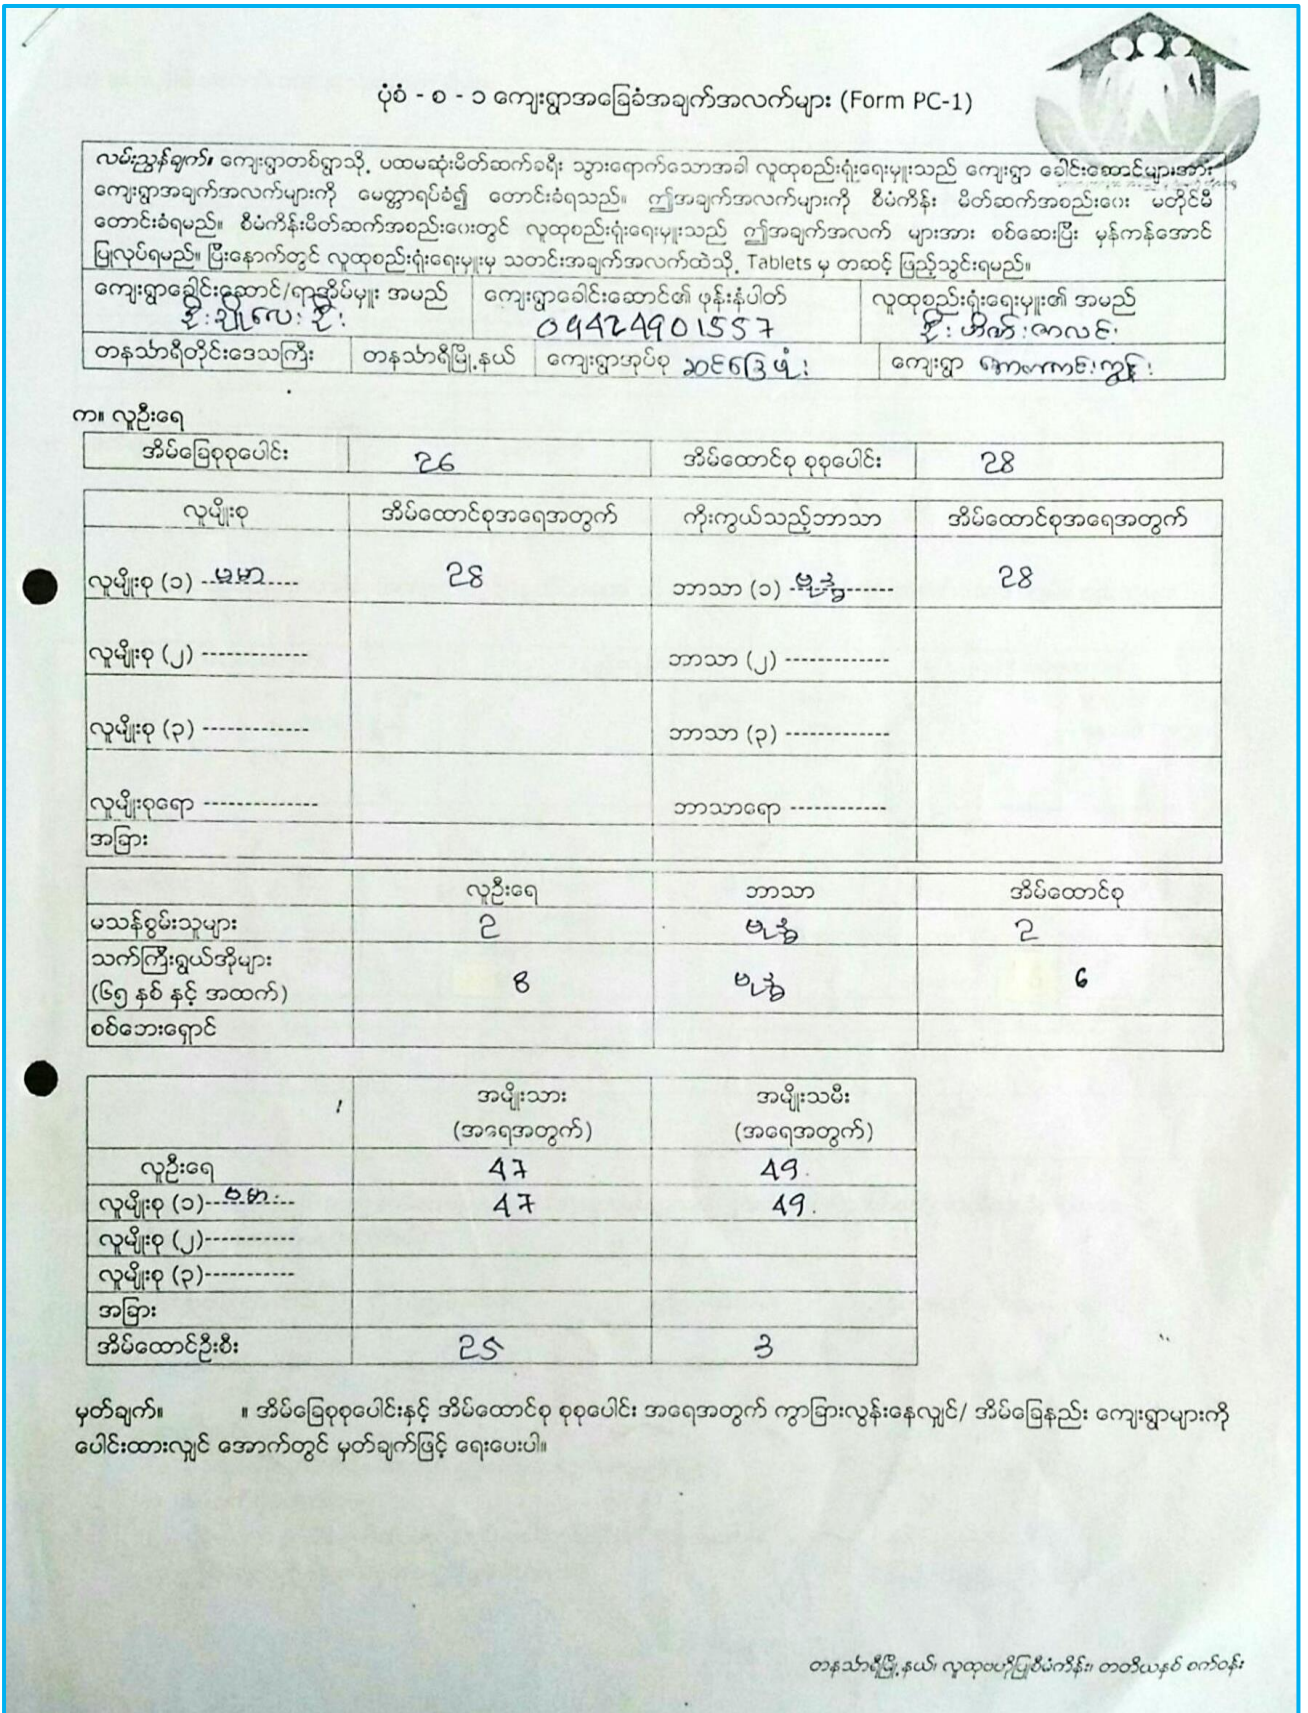 ပုံစံ - စ - ၁ ကျေးရွာအခြေခံအချက်အလက်များ (Form PC-1)
လမ်းညွှန်ချက်။ ကျေးရွာတစ်ရွာသို့ ပထမဆုံးမိတ်ဆက်ခရီး သွားရောက်သောအခါ လူထုစည်းရုံးရေးမှူးသည် ကျေးရွာ ခေါင်းဆောင်များအား
ကျေးရွာအချက်အလက်များကို မေတ္တာရပ်ခံ၍ တောင်းခံရသည်။ ဤအချက်အလက်များကို စီမံကိန်း မိတ်ဆက်အစည်းဝေး မတိုင်မီ
တောင်းခံရမည်။ စီမံကိန်းမိတ်ဆက်အစည်းဝေးတွင် လူထုစည်းရုံးရေးမှူးသည် ဤအချက်အလက် များအား စစ်ဆေးပြီး မှန်ကန်အောင်
ပြုလုပ်ရမည်။ ပြီးနောက်တွင် လူထုစည်းရုံးရေးမှူးမှ သတင်းအချက်အလက်ထဲသို့ Tablets မှ တဆင့် ဖြည့်သွင်းရမည်။
ကျေးရွာခေါင်းဆောင်/ရာအိမ်မှူး အမည် ကျေးရွာခေါင်းဆောင်၏ ဖုန်းနံပါတ် လူထုစည်းရုံးရေးမှူး၏ အမည်
09424901557
တနင်္သာရီတိုင်းဒေသကြီး တနင်္သာရီမြို့နယ် ကျေးရွာအုပ်စု ကျေးရွာ
က။ လူဦးရေ
အိမ်ခြေစုစုပေါင်း 26 အိမ်ထောင်စု စုစုပေါင်း 28
လူမျိုးစု အိမ်ထောင်စုအရေအတွက် ကိုးကွယ်သည့်ဘာသာ အိမ်ထောင်စုအရေအတွက်
လူမျိုးစု (၁) ဗမာ 28 ဘာသာ (၁) ဗုဒ္ဓ 28
လူမျိုးစု (၂) ------------- ဘာသာ (၂) -------------
လူမျိုးစု (၃) ------------- ဘာသာ (၃) -------------
လူမျိုးစုရော -------------- ဘာသာရော ------------
အခြား
လူဦးရေ ဘာသာ အိမ်ထောင်စု
မသန်စွမ်းသူများ 2 ဗုဒ္ဓ 2
သက်ကြီးရွယ်အိုများ
(၆၅ နှစ် နှင့် အထက်) 8 ဗုဒ္ဓ 6
စစ်ဘေးရှောင်
အမျိုးသား အမျိုးသမီး
(အရေအတွက်) (အရေအတွက်)
လူဦးရေ 47 49
လူမျိုးစု (၁) ဗမာ 47 49
လူမျိုးစု (၂)-----------
လူမျိုးစု (၃)-----------
အခြား
အိမ်ထောင်ဦးစီး 25 3
မှတ်ချက်။ ။ အိမ်ခြေစုစုပေါင်းနှင့် အိမ်ထောင်စု စုစုပေါင်း အရေအတွက် ကွာခြားလွန်းနေလျှင်/ အိမ်ခြေနည်း ကျေးရွာများကို
ပေါင်းထားလျှင် အောက်တွင် မှတ်ချက်ဖြင့် ရေးပေးပါ။
တနင်္သာရီမြို့နယ်၊ လူထုဗဟိုပြုစီမံကိန်း၊ တတိယနှစ် စက်ဝန်း